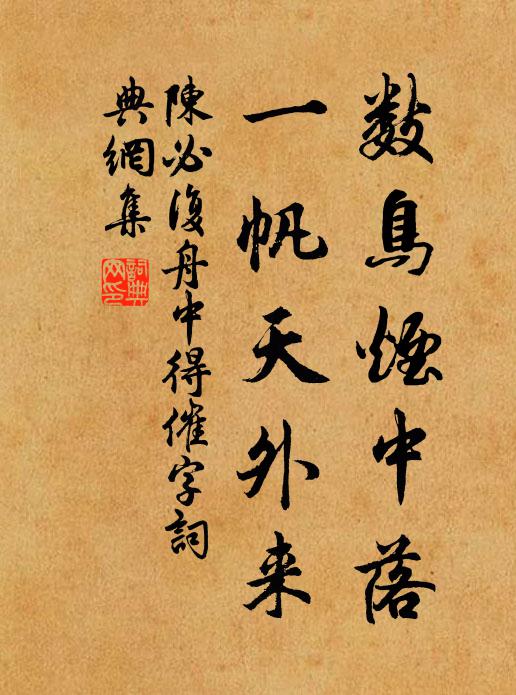 數鳥煙中落
一帆天外来
陳必復舟中得催字詞
典網集
詞典
网印